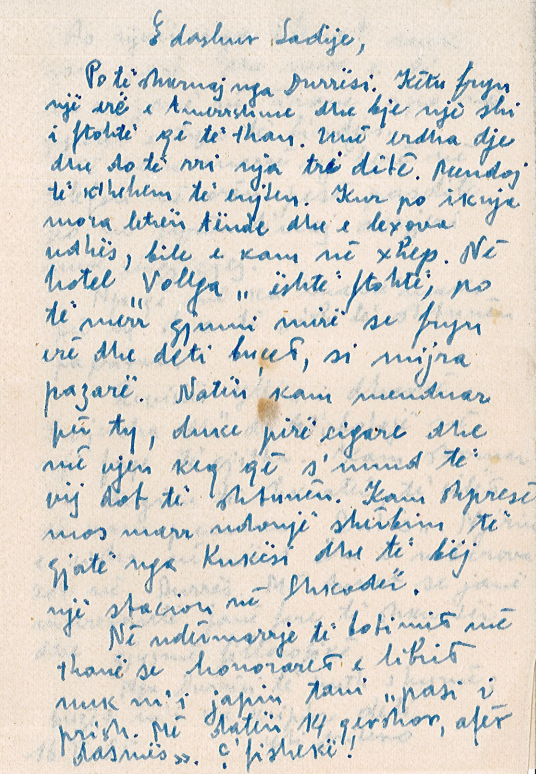 E dashur Sadije,
Po të shkruaj nga Durrësi. Këtu fryn
një erë e tmerrshme dhe bje një shi
i ftohtë që të than. Unë erdha dje
dhe do të rri nja tri ditë. Mendoj
të kthehem të enjten. Kur po iknja
mora letrën tënde dhe e lexova
udhës, bile e kam në xhep. Në
hotel "Vollga" është ftohtë, po
të merr gjumi mirë se fryn
erë dhe deti buçet, si mijra
pazarë. Natën kam menduar
për ty, duke pirë cigare dhe
më vjen keq që s'mund të
vij dot të shtunën. Kam shpresë
mos marr ndonjë shërbim të
gjatë nga Kukësi dhe të bëj
një stacion në Shkodër.
Në ndërmarrje të botimit më
thanë se honoraret e librit
nuk m'i japin tani "pasi i
prish. Në datën 14 qershor, afër
dasmës". Ç'fishekë!